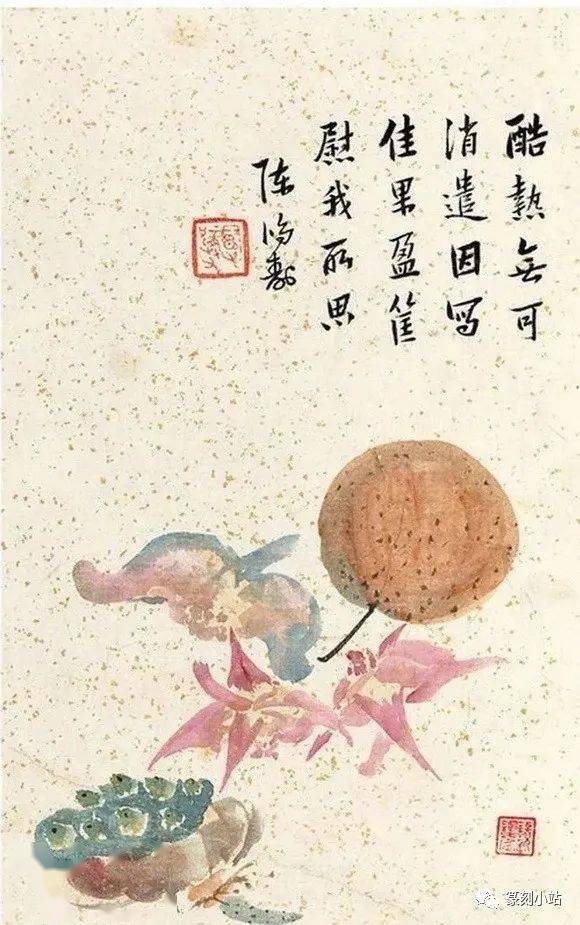 酷熱無可
消遣因寫
佳果盈筐
慰我所思
陳鴻壽
篆刻小站